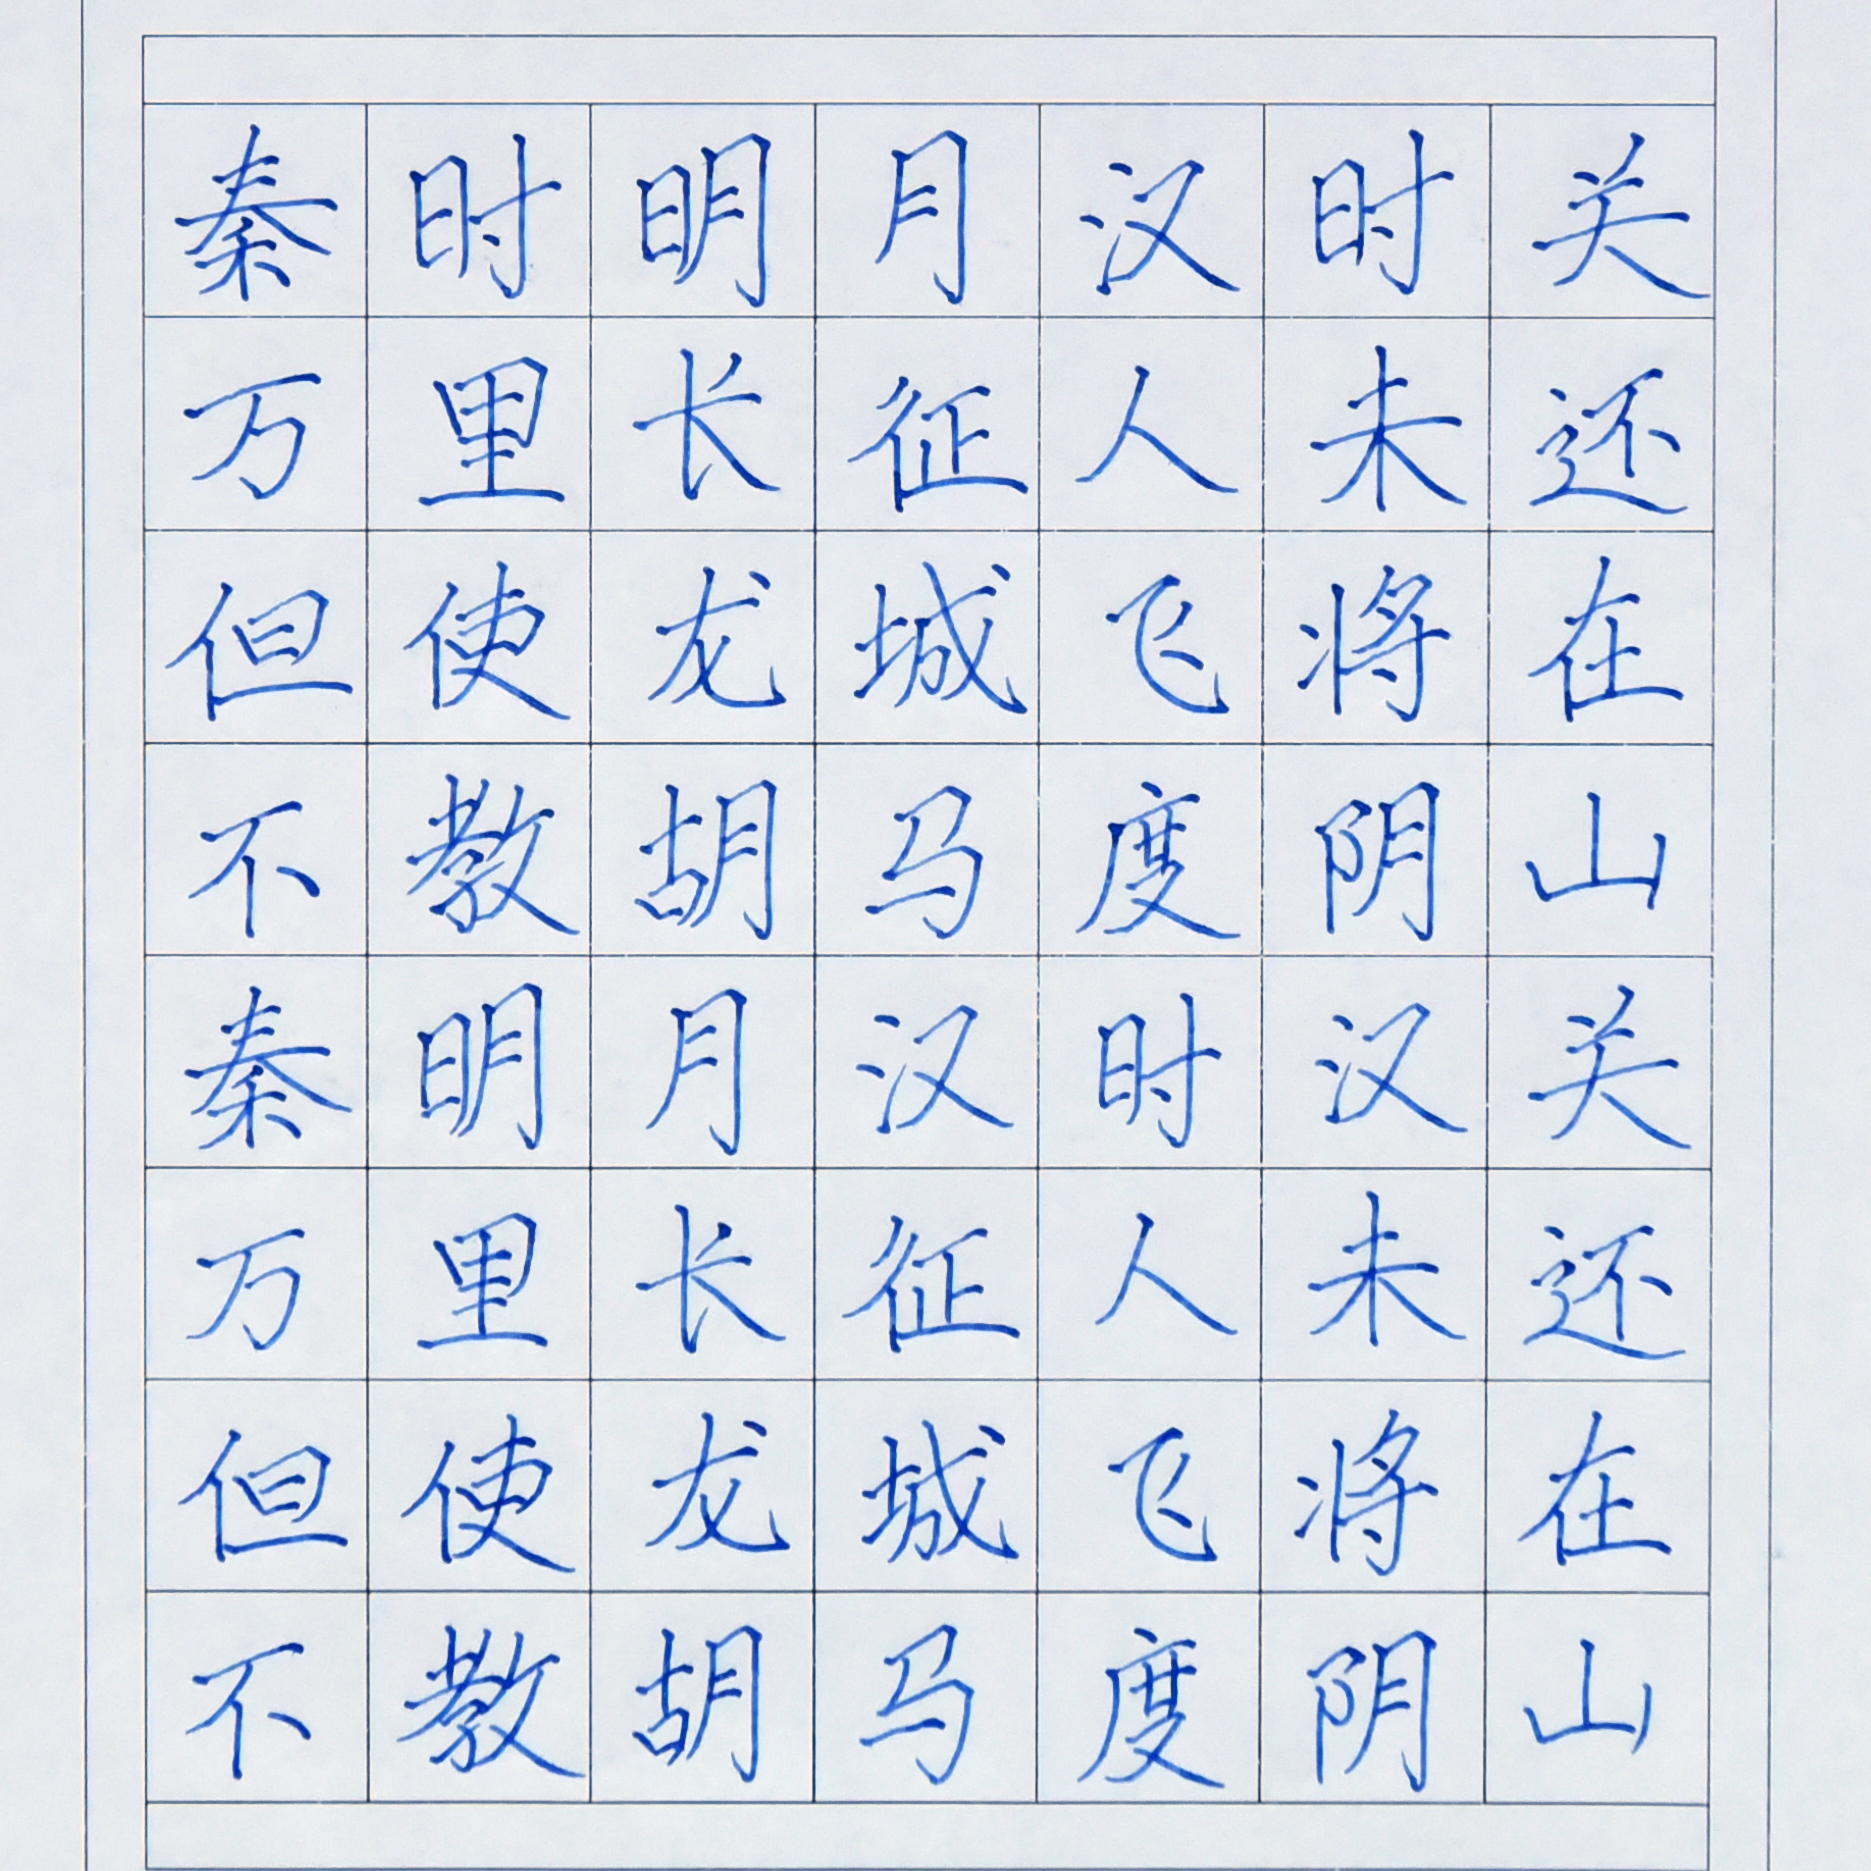 秦时明月汉时关
万里长征人未还
但使龙城飞将在
不教胡马度阴山
秦明月汉时汉关
万里长征人未还
但使龙城飞将在
不教胡马度阴山